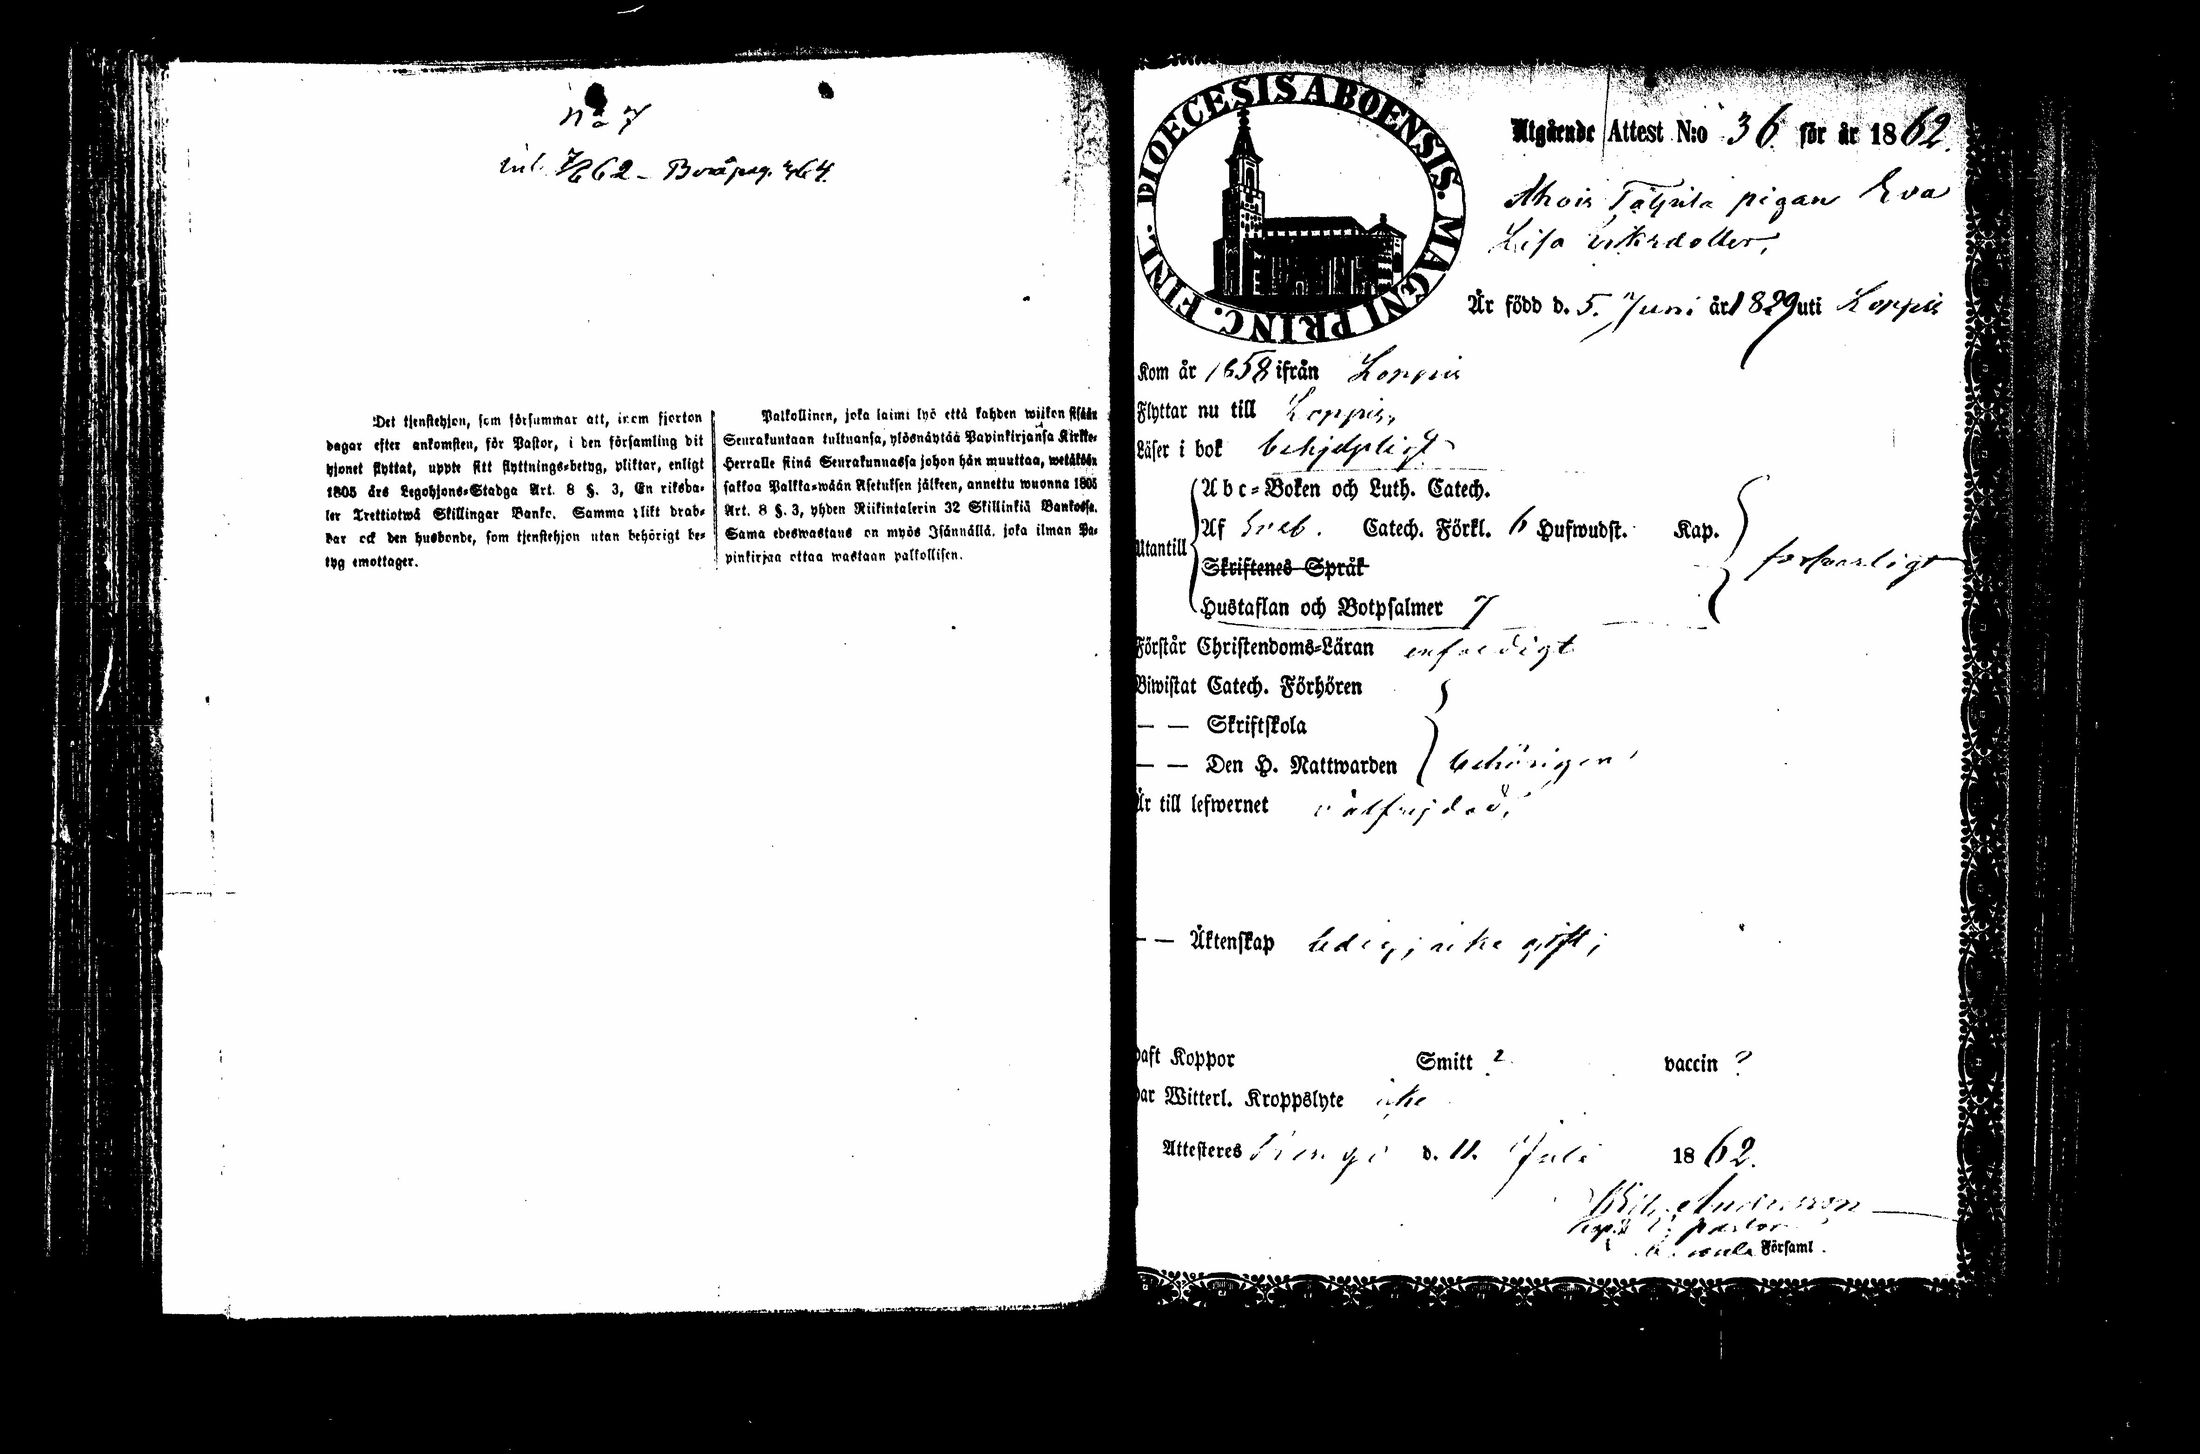 no 7
inl. 7/6 62 - Boråpag. 464.
Det tjenstehjon, som försummar att, inom fjorton
dagar efter ankomsten, för Pastor, i den församling dit
hjonet flyttat, uppte sitt flyttnings=betyg, pliktar, enligt
1805 års Legohjons=Stadga Art. 8 §. 3, En riksda=
ler Trettiotwå Skillingar Banko. Samma plikt drab=
bar ock den husbonde, som tjenstehjon utan behörigt be=
tyg emottager.
Palkollinen, joka laimi lyö että kahden wiikon sisään
Seurakuntaan tultuansa, ylösnäytää Papinkirjansa Kirkko=
Herralle siinä Seurakunnassa johon hän muuttaa, wetäköön
sakkoa Palkka=wään Asetuksen jälkeen, annettu wuonna 1805
Art. 8 §. 3, yhden Riikintalerin 32 Skillinkiä Bankossa.
Sama edeswastaus on myös Isännällä, joka ilman Pa=
pinkirjaa ottaa wastaan palkollisen.
DIOECESIS ABOENSIS. MAGNI PRINC. FINL.
Utgående Attest N:o 36 för år 1862.
pigan Eva
Lisa
Är född d. 5. Juni år 1829 uti Loppis
Kom år 1858 ifrån Loppis
Flyttar nu till Loppis,
Läser i bok behjelpligt
Utantill
Abc=Boken och Luth. Catech.
Af Sveb. Catech. Förkl. 6 Hufwudst. Kap.
Skriftenes Språk
försvarligt
Hustaflan och Botpsalmer 7
Förstår Christendoms=Läran enfaldigt
Biwistat Catech. Förhören
— — Skriftskola
— — Den H. Nattwarden behörigen
Är till lefwernet välfrejdad,
— — Äktenskap ledig; icke gift;
Haft Koppor Smitt ? vaccin ?
Har Witterl. Kroppslyte icke
Attesteres d. 11. Juli 1862.
Andersson
pastor
Församl.